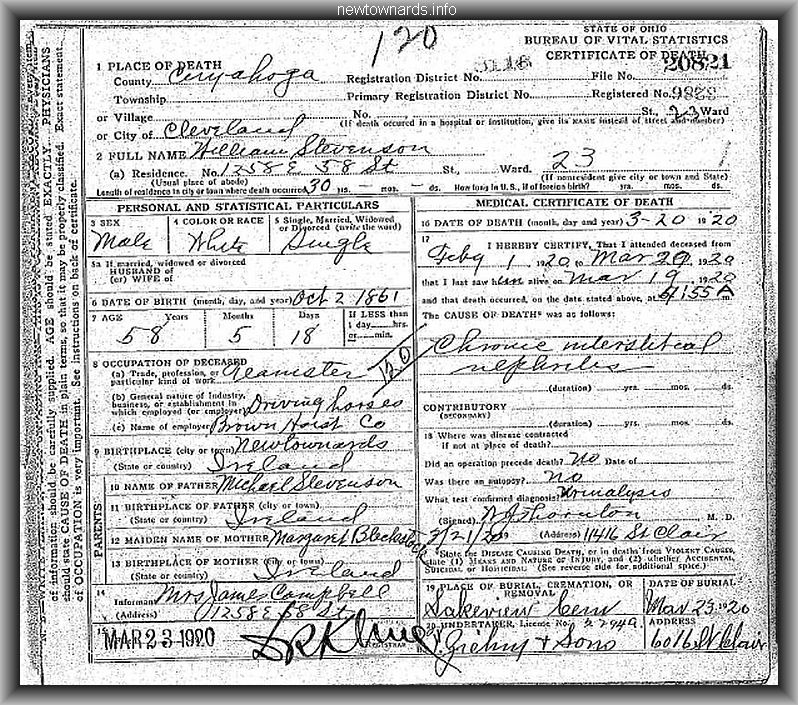 newtownards.info
120
STATE OF OHIO
BUREAU OF VITAL STATISTICS
CERTIFICATE OF DEATH
1 PLACE OF DEATH
County Cuyahoga Registration District No. 3118 File No. 20821
Township Primary Registration District No. Registered No.
or Village No. St., 23 Ward
or City of Cleveland (If death occured in a hospital or institution, give its NAME instead of street and number)
2 FULL NAME William Stevenson
(a) Residence. No. 1258 E 58 St St., Ward. 23
(Usual place of abode) (If nonresident give city or town and State)
Length of residence in city or town where death occurred 30 yrs. - mos. - ds. How long in U.S., if of foreign birth? yrs. mos. ds.
PERSONAL AND STATISTICAL PARTICULARS
3 SEX
Male
4 COLOR OR RACE
White
5 Single, Married, Widowed or Divorced (write the word)
Single
5a If married, widowed or divorced
HUSBAND of
(or) WIFE of
6 DATE OF BIRTH (month, day, and year) Oct 2 1861
7 AGE Years Months Days If LESS than
1 day, hrs.
or min.
58 5 18
8 OCCUPATION OF DECEASED
(a) Trade, profession, or
particular kind of work Teamster
120
(b) General nature of Industry,
business, or establishment in
which employed (or employer) Driving horses
(c) Name of employer Brown Hoist Co
9 BIRTHPLACE (city or town) Newtownards
(State or country) Ireland
PARENTS
10 NAME OF FATHER Michael Stevenson
11 BIRTHPLACE OF FATHER (city or town)
(State or country) Ireland
12 MAIDEN NAME OF MOTHER Margaret
13 BIRTHPLACE OF MOTHER (city or town)
(State or country) Ireland
14
Informant Mrs James Campbell
(Address) 1258 E 58 St
15
MAR 23 1920
REGISTRAR
MEDICAL CERTIFICATE OF DEATH
16 DATE OF DEATH (month, day and year) 3-20 1920
17
I HEREBY CERTIFY, That I attended deceased from
Feby 1, 1920 to Mar 20, 1920
that I last saw him alive on Mar 19, 1920
and that death occurred, on the date stated above, at 55 A
The CAUSE OF DEATH* was as follows:
Chronic interstitial
nephritis
(duration) yrs. mos. ds.
CONTRIBUTORY
(SECONDARY)
(duration) yrs. mos. ds.
18 Where was disease contracted
if not at place of death?
Did an operation precede death? No Date of
Was there an autopsy? No
What test confirmed diagnosis? Urinalysis
(Signed) Thornton M. D.
3/21/20 19 (Address) 11416 St Clair
*State the DISEASE CAUSING DEATH, or in deaths from VIOLENT CAUSES,
state (1) MEANS AND NATURE OF INJURY, and (2) whether ACCIDENTAL,
SUICIDAL or HOMICIDAL. (See reverse side for additional space.)
19 PLACE OF BURIAL, CREMATION, OR REMOVAL
Lakeview Cem
DATE OF BURIAL
Mar 23 1920
20 UNDERTAKER, License No.
& Sons
ADDRESS
6016 St Clair
of information should be carefully supplied. AGE should be stated EXACTLY. PHYSICIANS
should state CAUSE OF DEATH in plain terms, so that it may be properly classified. Exact statement
of OCCUPATION is very important. See instructions on back of certificate.